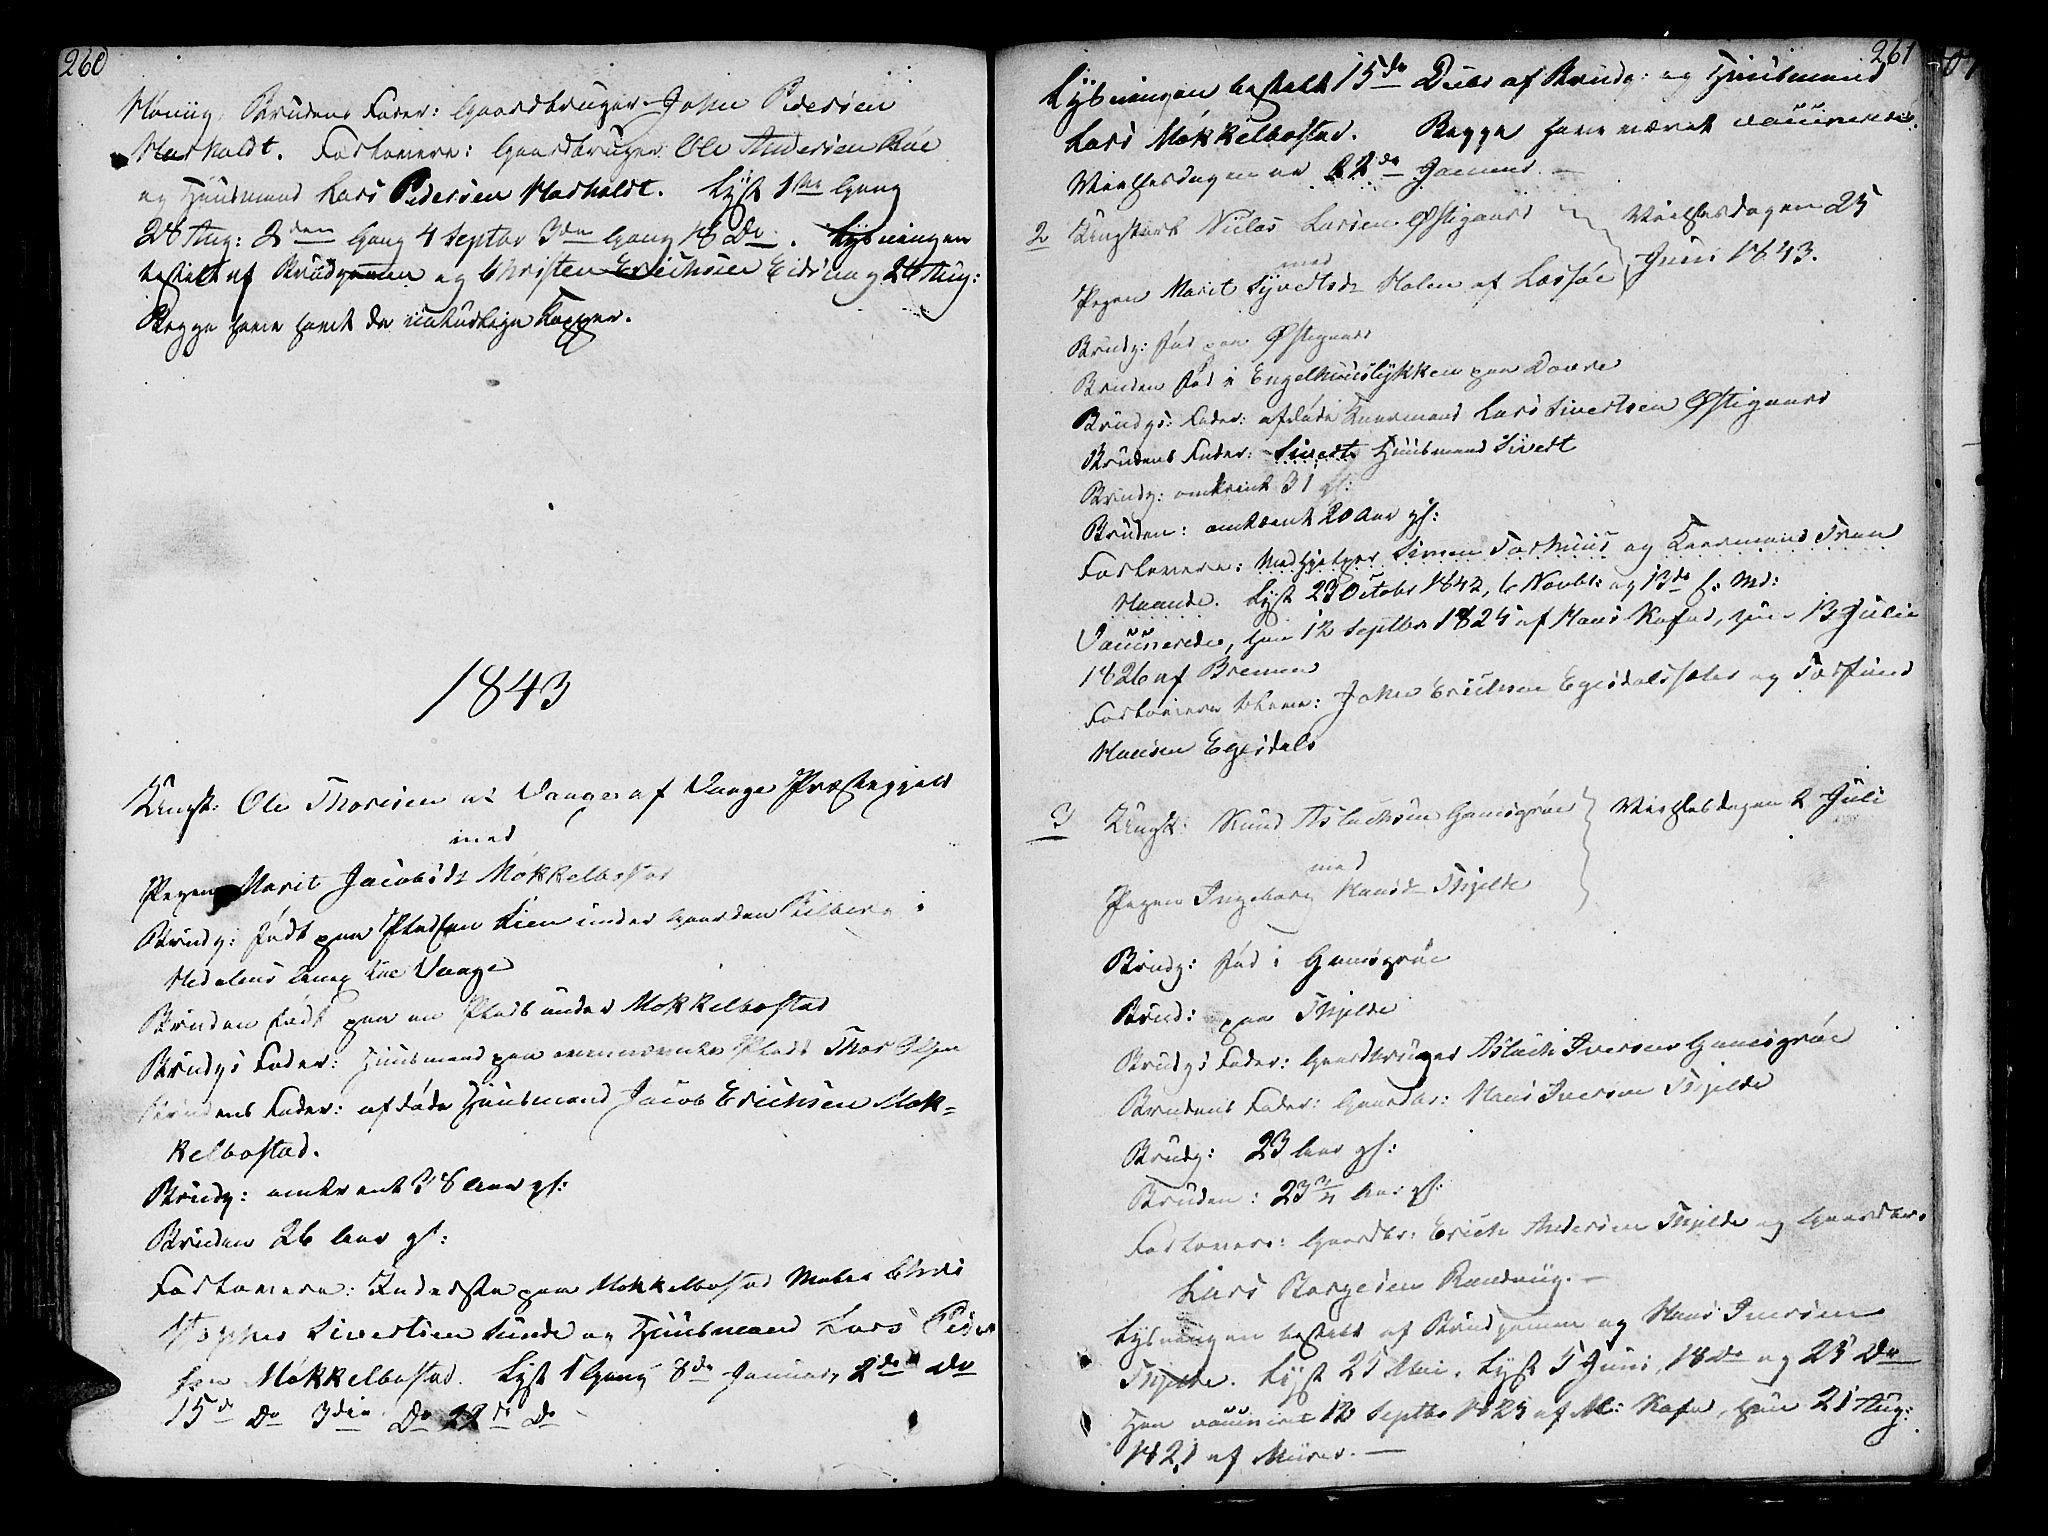 260
Brudens Fader: Gaardbruger John Pedersen
Harholdt. Forlovere: Gaardbruger Ole Andersen Röe
og Huusmand Lars Pedersen Harholdt. Lyst 1ste Gang
28 Aug: 2den Gang 4 Septbr 3die Gang 18 Do. Lysningen
bestilt af Brudgommen og Christen Erichsen Eidsvaag 24 Aug:
Begge have havt de naturlige Kopper.
1843
Ungk: Ole Thoresen af Vaage Præstegjeld
med
Pigen Marit Jacobsdr Mökkelbostad
Brudg: födt paa Pladsen Lien under Gaarden i
Hedalens Annex til Vaage
Bruden födt paa en Plads under Mökkelbostad
Brudgs Fader: Huusmand paa ovennævnte Plads Thor Olsen
Brudens Fader: afdöde Huusmand Jacob Erichsen Mök-
kelbostad.
Brudg: omtrent 38 Aar gl:
Bruden 26 Aar gl:
Forlovere: Inderste paa Mökkelbostad
Sivertsen Sunde og Huusmand Lars Peder
sen Mökkelbostad. Lyst 1 Gang 8de Januar, 2de Do
15de Do 3die Do 22de Do
261
Lysningen bestilt 15de Decbr af Brudg: og Huusmand
Lars Mökkelbostad. Begge have været vaccinerede.
Vielsesdagen er 22de Januar. —
2 Ungkarl Niclas Larsen Östigaard Vielsesdagen 25
med
Juni 1843.
Pigen Marit Syvertsdr Holen af Lassöe
Brudg: föd paa Östigaard
Bruden föd i Engelhuuslykken paa Dovre
Brudgs: Fader: afdöde Kaarmand Lars Sivertsen Östigaard
Brudens Fader: Sivert Huusmand Sivert
Brudg: omtrent 31 gl:
Bruden: omtrent 20 Aar gl:
Forlovere: Medhjelper Simen Torhuus og Kaarmand Iver
Haande. Lyst 23 Octobr 1842, 6 Novbr og 13de s: Md:
Vaccinerede, han 12 Septbr 1825 af Hans Kafad, hun 13 Julii
1826 af Bremen
Forlovere bleve: John Erichsen Egisdalssæter og Torfind
Hansen Egisdals
3 Ungk: Knud Aslachsen Gamsgröe Vielsesdagen 2 Juli
med
Pigen Ingeborg Hansdr Thjelde
Brudg: föd i Gamsgröe
Brud: paa Thjelde
Brudgs Fader: Gaardbruger Aslach Iversen Gamsgröe
Brudens Fader: Gaardbr: Hans Iversen Thjelde
Brudg: 23 Aar gl:
Bruden: 23 3/4 Aar gl:
Forlovere: Gaardbr: Erich Andersen Thjelde og Gaardbr.
Lars Börgesen Randvig. —
Lysningen bestilt af Brudgommen og Hans Iversen
Thjelde. Lyst 25 Mai. Lyst 5 Juni, 18 Do og 25 Do
Han vaccineret 12 Septbr 1825 af Kafad, hun 21 Aug:
1821 af